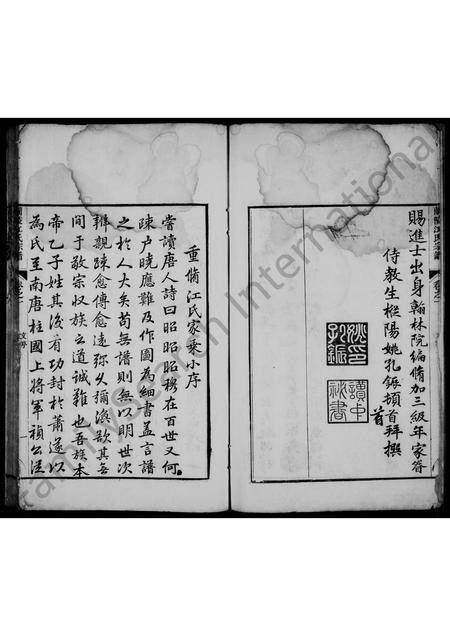 賜進士出身翰林院編脩加三級年家眷
侍教生樅陽姚孔鋠頓首拜撰
首
讀中秘書
重脩江氏家乘小序
嘗讀唐人詩曰昭昭穆在百世又何
踈戶曉應難及作圖為細書蓋言譜
之於人大矣苟無譜則無以明世次
辨親踈愈傳愈遠弥久彌渙欲其無
間于敬宗収族之道誠難也吾族本
帝乙子姓其後有功封於蕭遂以
為氏至南唐柱國上將軍禎公渡
蘭陵江氏宗譜
卷之一
文序
FamilySearch International